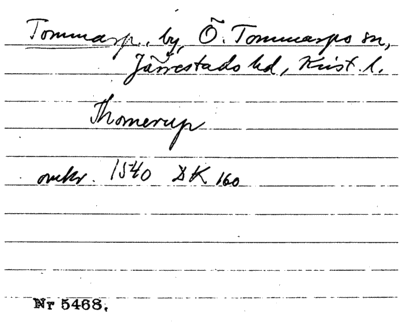 Tommarp. by, Ö. Tommarps sn,
Järrestads hd, Krist. l.
Thomerup
omkr. 1540 DK 160
Nr 5468.